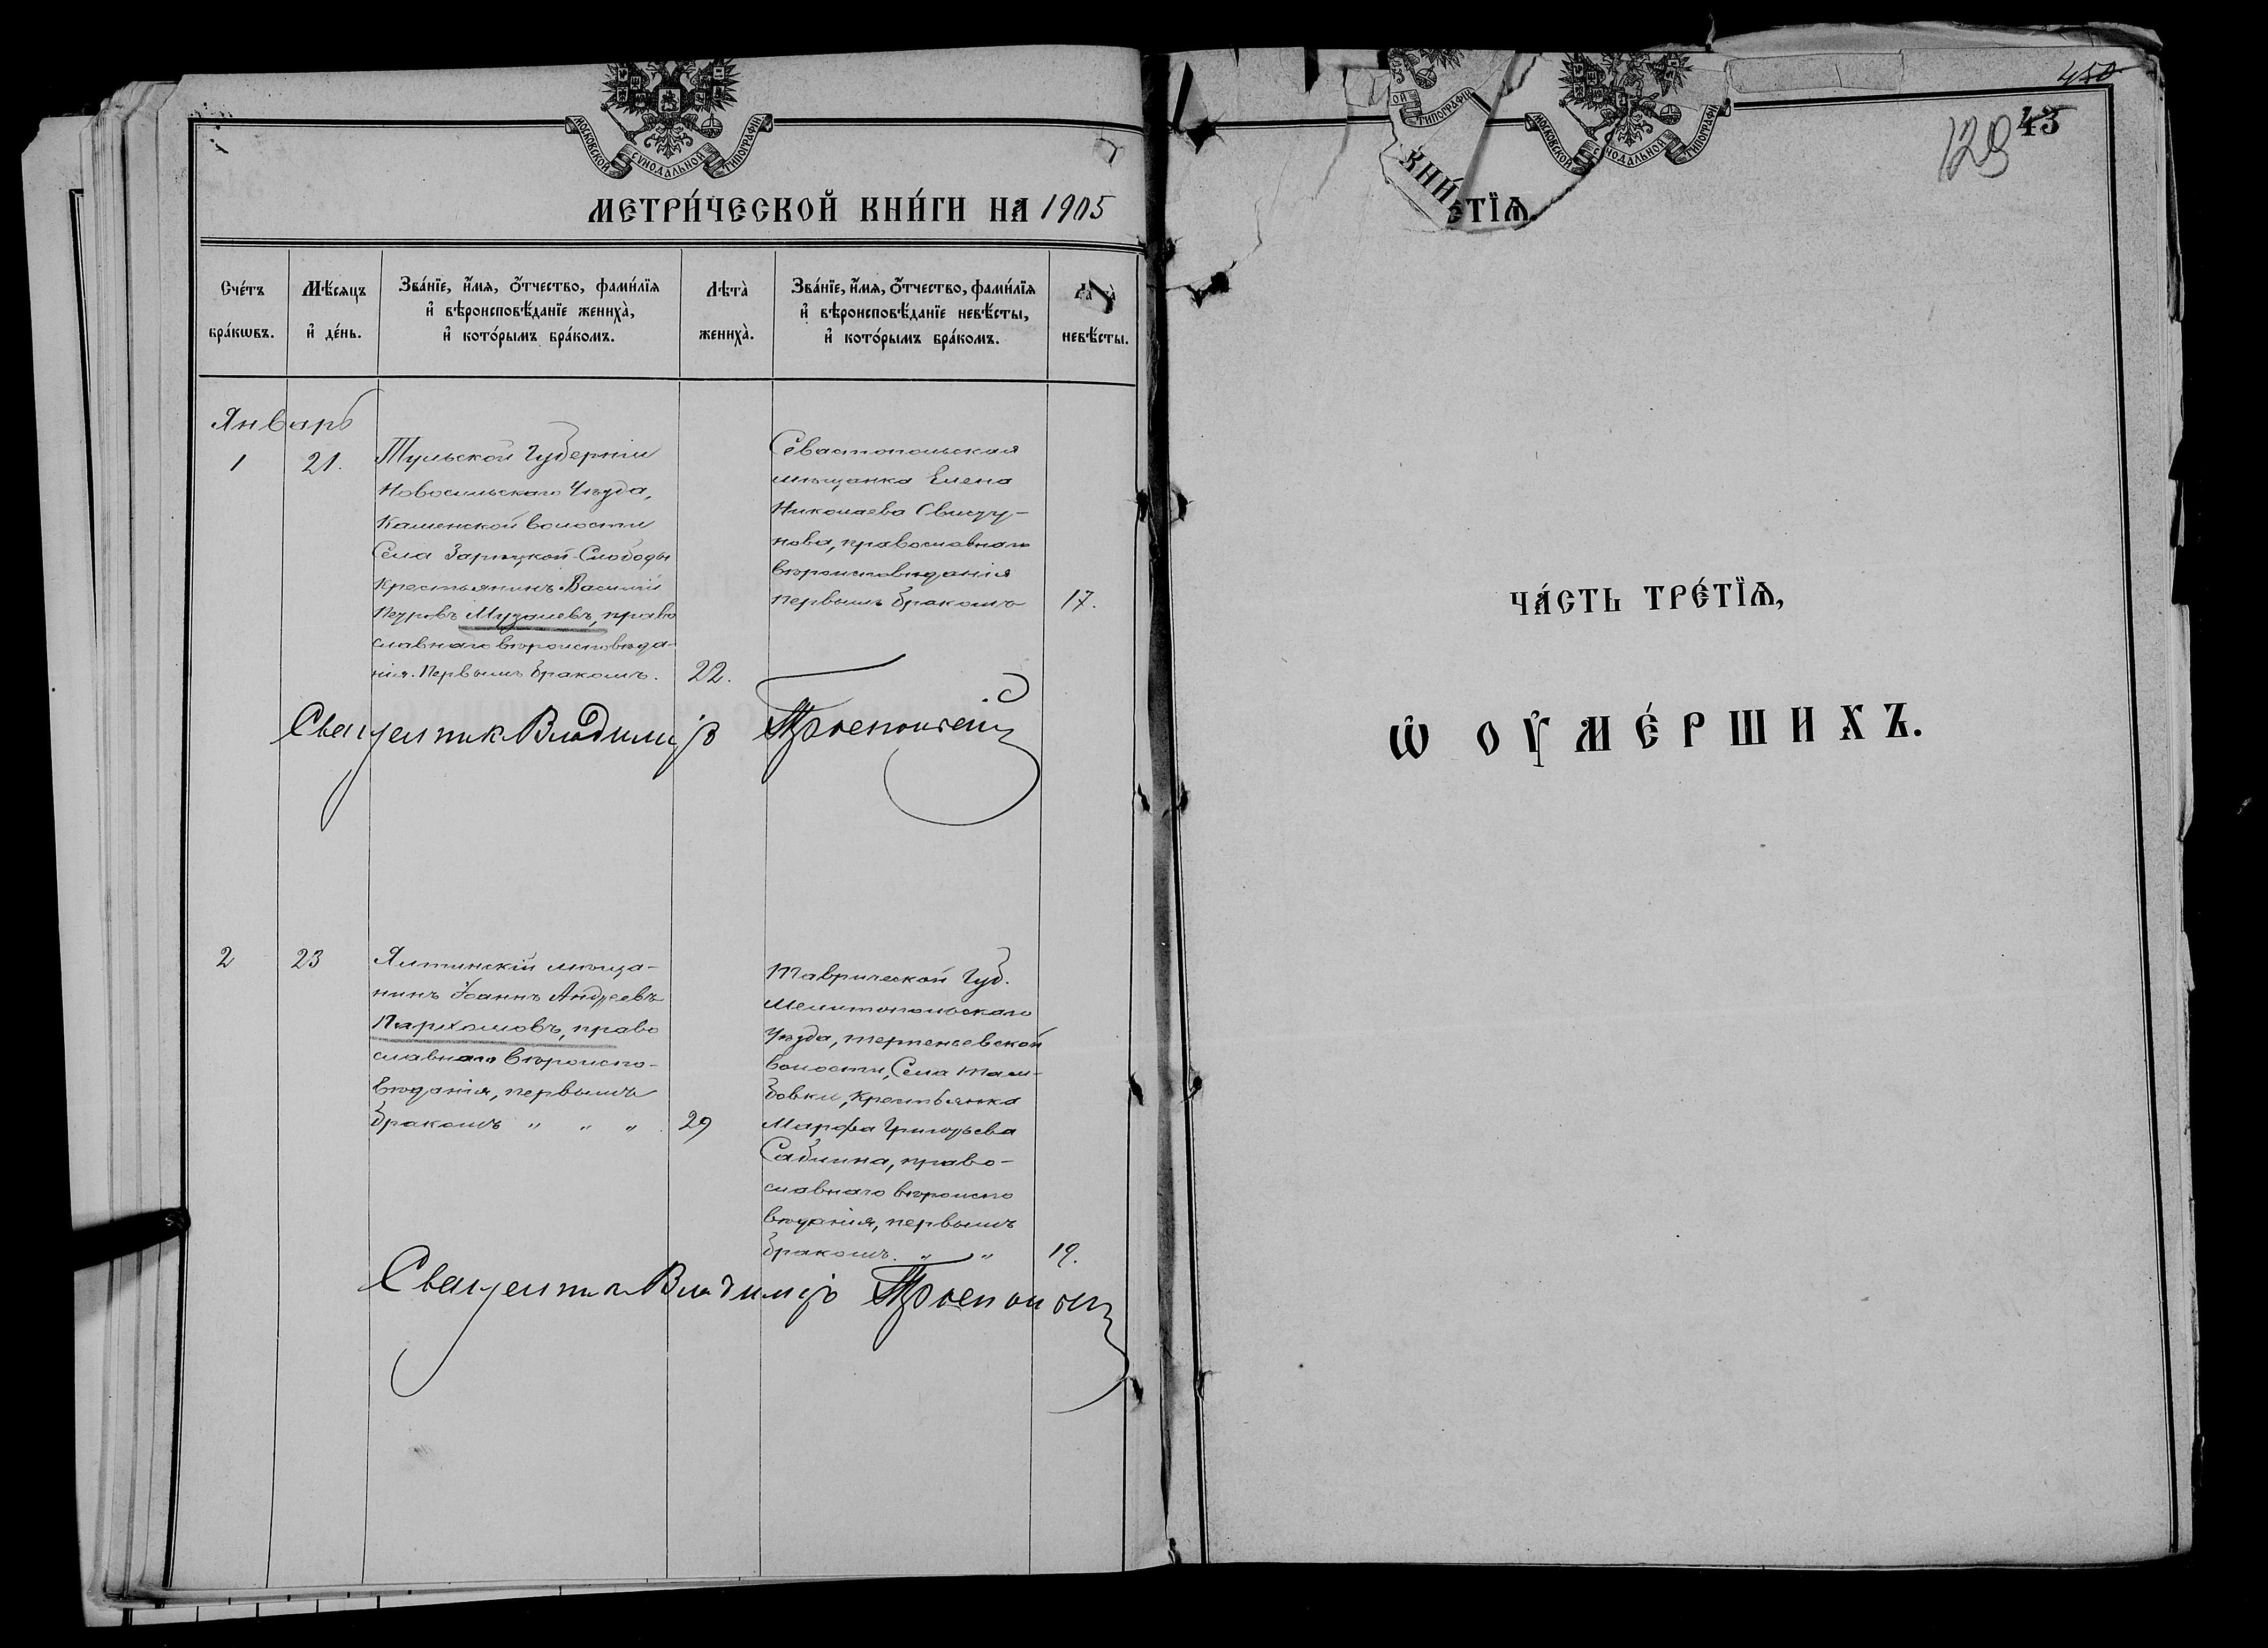 МОСКОВСКОЙ СѴНОДАЛЬНОЙ ТИПОГРАФІИ
МЕТРИ́ЧЕСКОЙ КНИ́ГИ НА 1905
Сче́тъ бра́кѡвъ.
Мѣ́сяцъ и҆ де́нь.
Зва́нїе, и҆́мя, ѻ҆́тчество, фами́лїя
и҆ вѣроисповѣ́данїе жениха̀,
и҆ кото́рымъ бра́комъ.
Лѣта̀ жениха̀.
Зва́нїе, и҆́мя, ѻ҆́тчество, фами́лїя
и҆ вѣроисповѣ́данїе невѣ́сты,
и҆ кото́рымъ бра́комъ.
невѣ́сты.
Январь
1
21.
Тульской Губерніи
Новосильскаго Уѣзда,
Каменской волости
Села Зарѣцкой-Слободы
Крестьянинъ Василій
Петровъ Музалевъ, право
славнаго вѣроисповѣда-
нія. Первымъ бракомъ.
22.
Севастопольская
мѣщанка Елена
Николаева Свисту-
нова, православнаго
вѣроисповѣданія
первымъ бракомъ
17.
Священник Владимiръ
2
23
Ялтинскій мѣща-
нинъ Іоаннъ Андреевъ
Пархомовъ, право
славнаго вѣроиспо-
вѣданія, первымъ
бракомъ " " "
29
Таврической Губ.
Мелитопольскаго
Уѣзда, Терпеніевской
волости, Села Там-
бовки, Крестьянка
Марфа Григорьева
Саблина, право-
славнаго вѣроиспо
вѣданія, первымъ
бракомъ. " "
19.
Священник Владимiръ
450
43
129
ОЙ ТИПОГРАФІИ
МОСКОВСКОЙ СѴНОДАЛЬНОЙ ТИПОГРАФІИ
КНИ́
ЕТЇѦ.
ЧА́СТЬ ТРЕ́ТЇѦ,
Ѡ҆ ОУ҆МЕ́РШИХЪ.